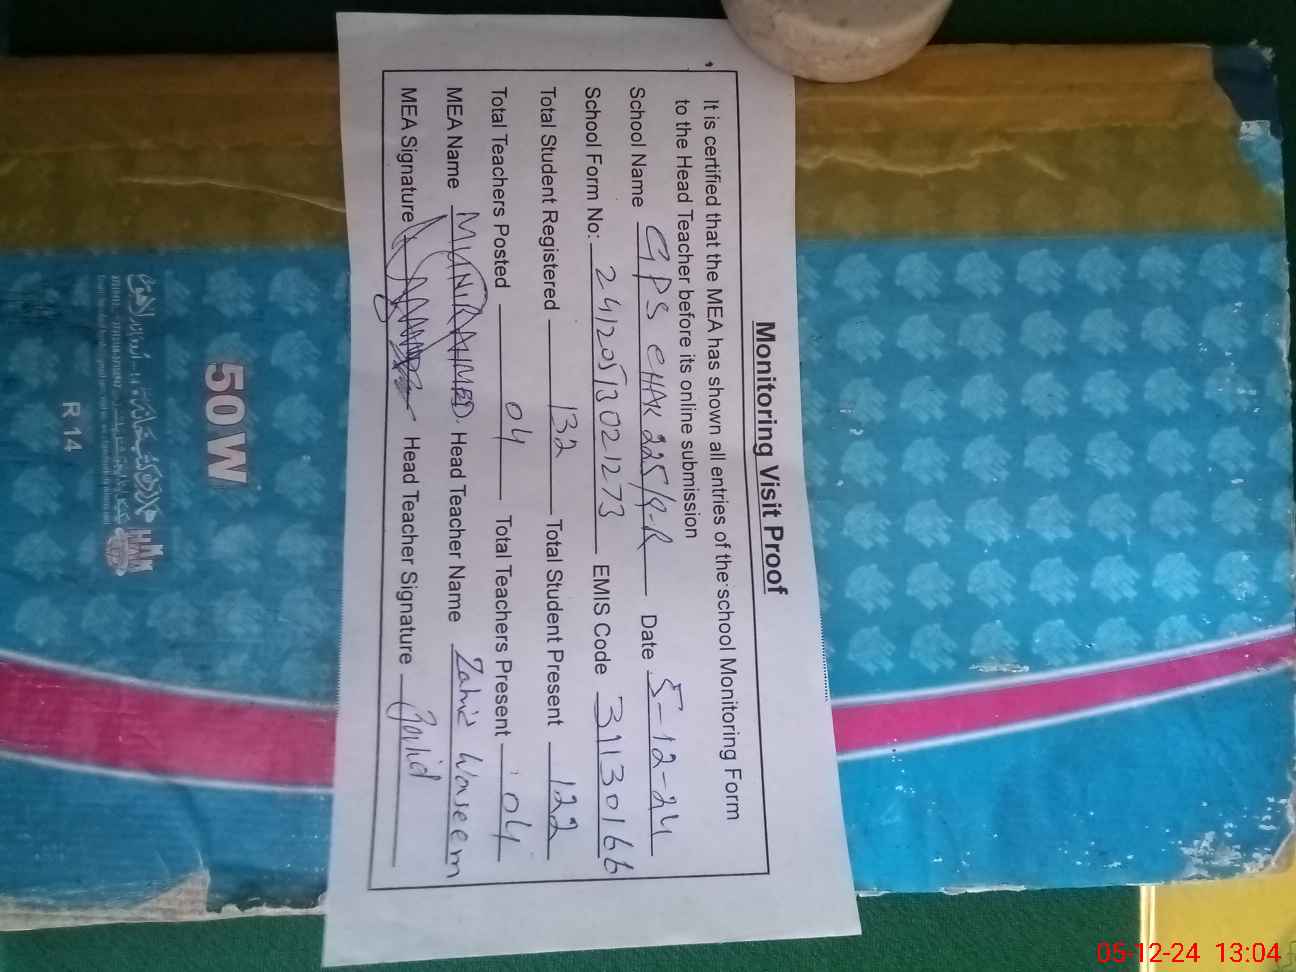 Monitoring Visit Proof
It is certified that the MEA has shown all entries of the school Monitoring Form
to the Head Teacher before its online submission
School Name GPS CHAK 225/9-R Date 5-12-24
School Form No: 2412051302 1273 EMIS Code 31130166
Total Student Registered 132 Total Student Present 122
Total Teachers Posted 04 Total Teachers Present 04
MEA Name MUNIR AHMED Head Teacher Name Zahid Waseem
MEA Signature Head Teacher Signature Zahid
50W
R 14
05-12-24 13:04